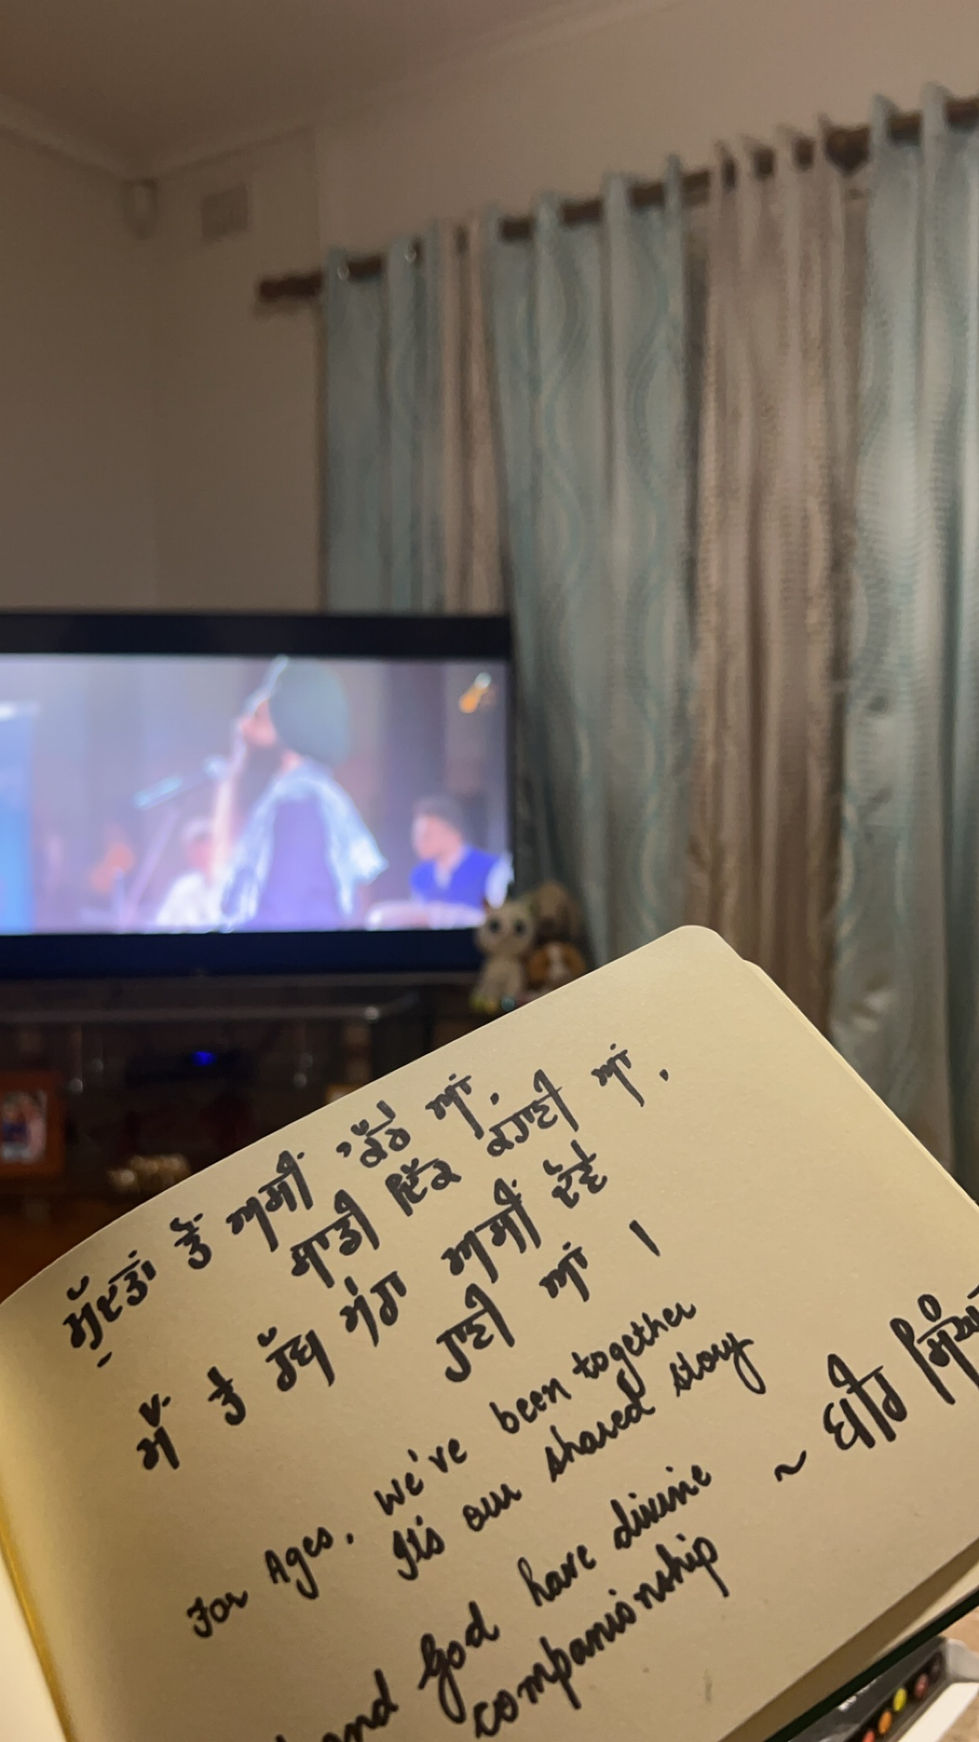 ਮੁੱਦਤਾਂ ਤੋਂ ਅਸੀਂ 'ਕੱਠੇ ਆਂ,
ਸਾਡੀ ਇੱਕ ਕਹਾਣੀ ਆਂ,
ਮੈਂ ਤੇ ਰੱਬ ਅਸੀਂ ਦੋਵੇਂ
ਹਾਣੀ ਆਂ ।
For Ages, we've been together
It's our shared story
and God have divine
companionship
~ ਬੀਰ ਸਿੰਘ